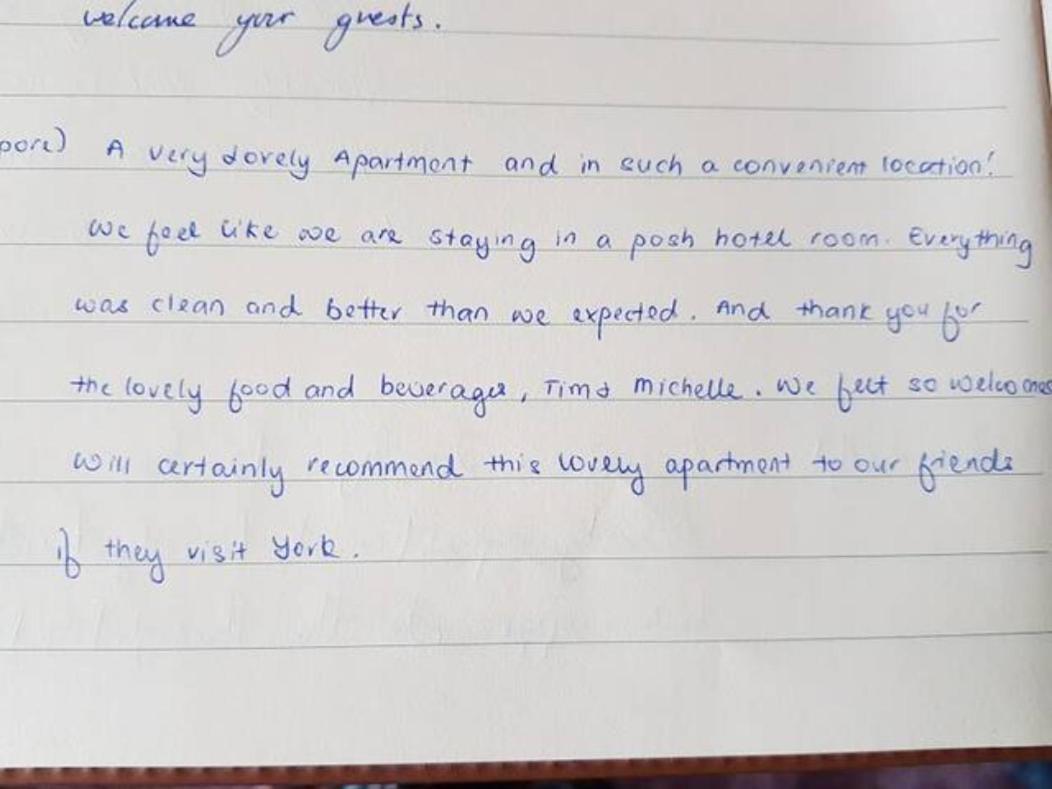 welcome your guests.
pore) A very lovely Apartment and in such a convenient location!
We feel like we are staying in a posh hotel room. Everything
was clean and better than we expected. And thank you for
the lovely food and beverages, Tim & Michelle. We felt so welcomed
will certainly recommend this lovely apartment to our friends
if they visit York.